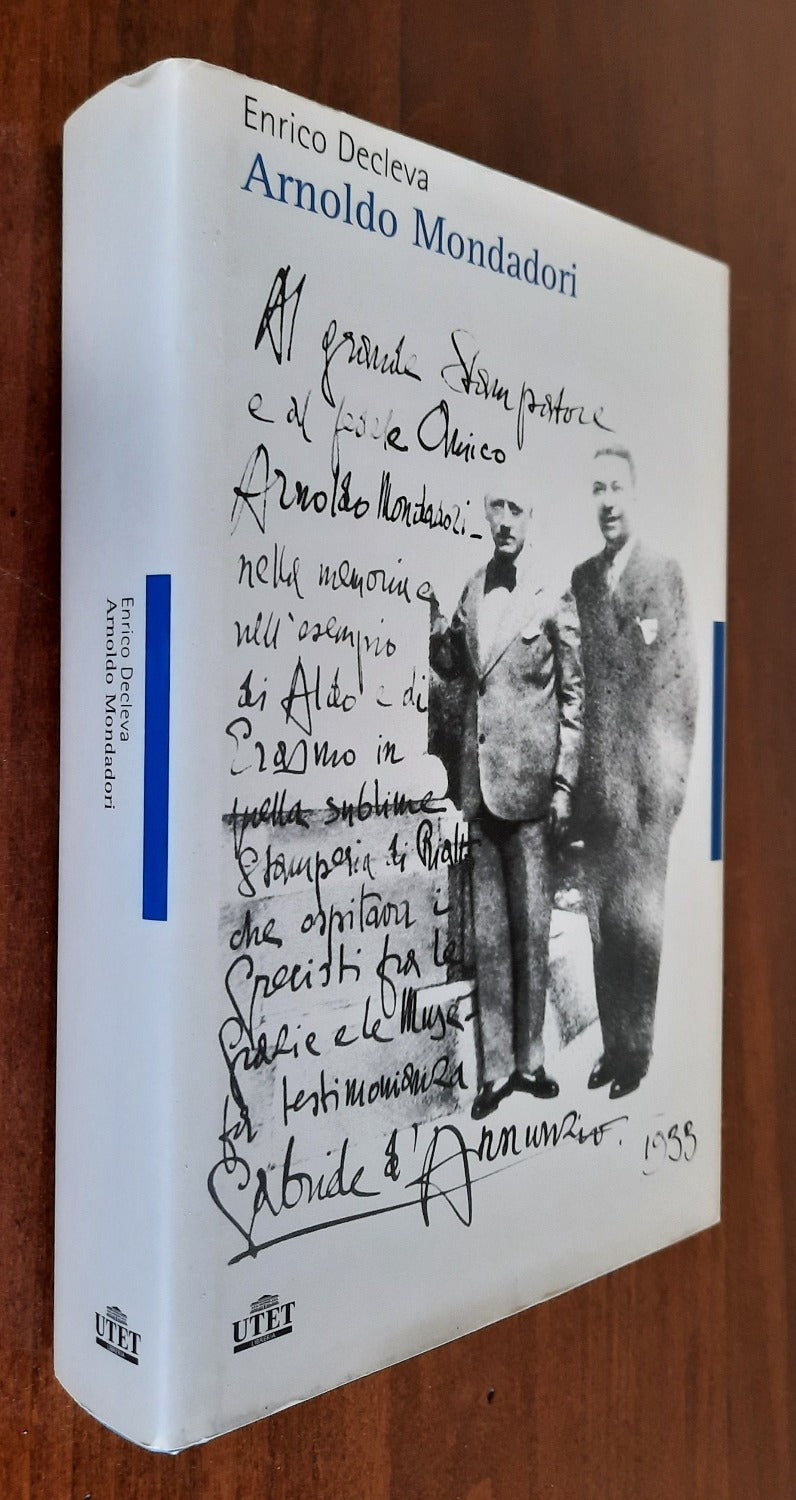 Enrico Decleva
Arnoldo Mondadori
Al grande Stampatore
e al fedele Amico
Arnoldo Mondadori_
nella memoria e
nell'esempio
di Aldo e di
Erasmo in
quella sublime
Stamperia di Rialto
che ospitava i
Grecisti fra le
Grazie e le Muse-
testimonianza
Gabriele d'Annunzio. 1933
UTET
LIBRERIA
Enrico Decleva
Arnoldo Mondadori
UTET
LIBRERIA